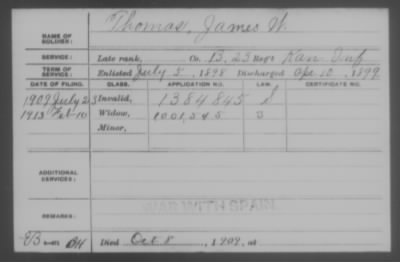 NAME OF SOLDIER: Thomas, James W.
SERVICE: Late rank, Co. B, 23 Reg't Kan Inf
TERM OF SERVICE: Enlisted July 5, 1898 Discharged Apr 10, 1899
DATE OF FILING. CLASS. APPLICATION NO. LAW. CERTIFICATE NO.
1909 July 23 Invalid, 1384845
1913 Feb 10 Widow, 1001,545
Minor,
ADDITIONAL SERVICES:
WAR WITH SPAIN.
REMARKS:
Died Oct 8, 1909, at